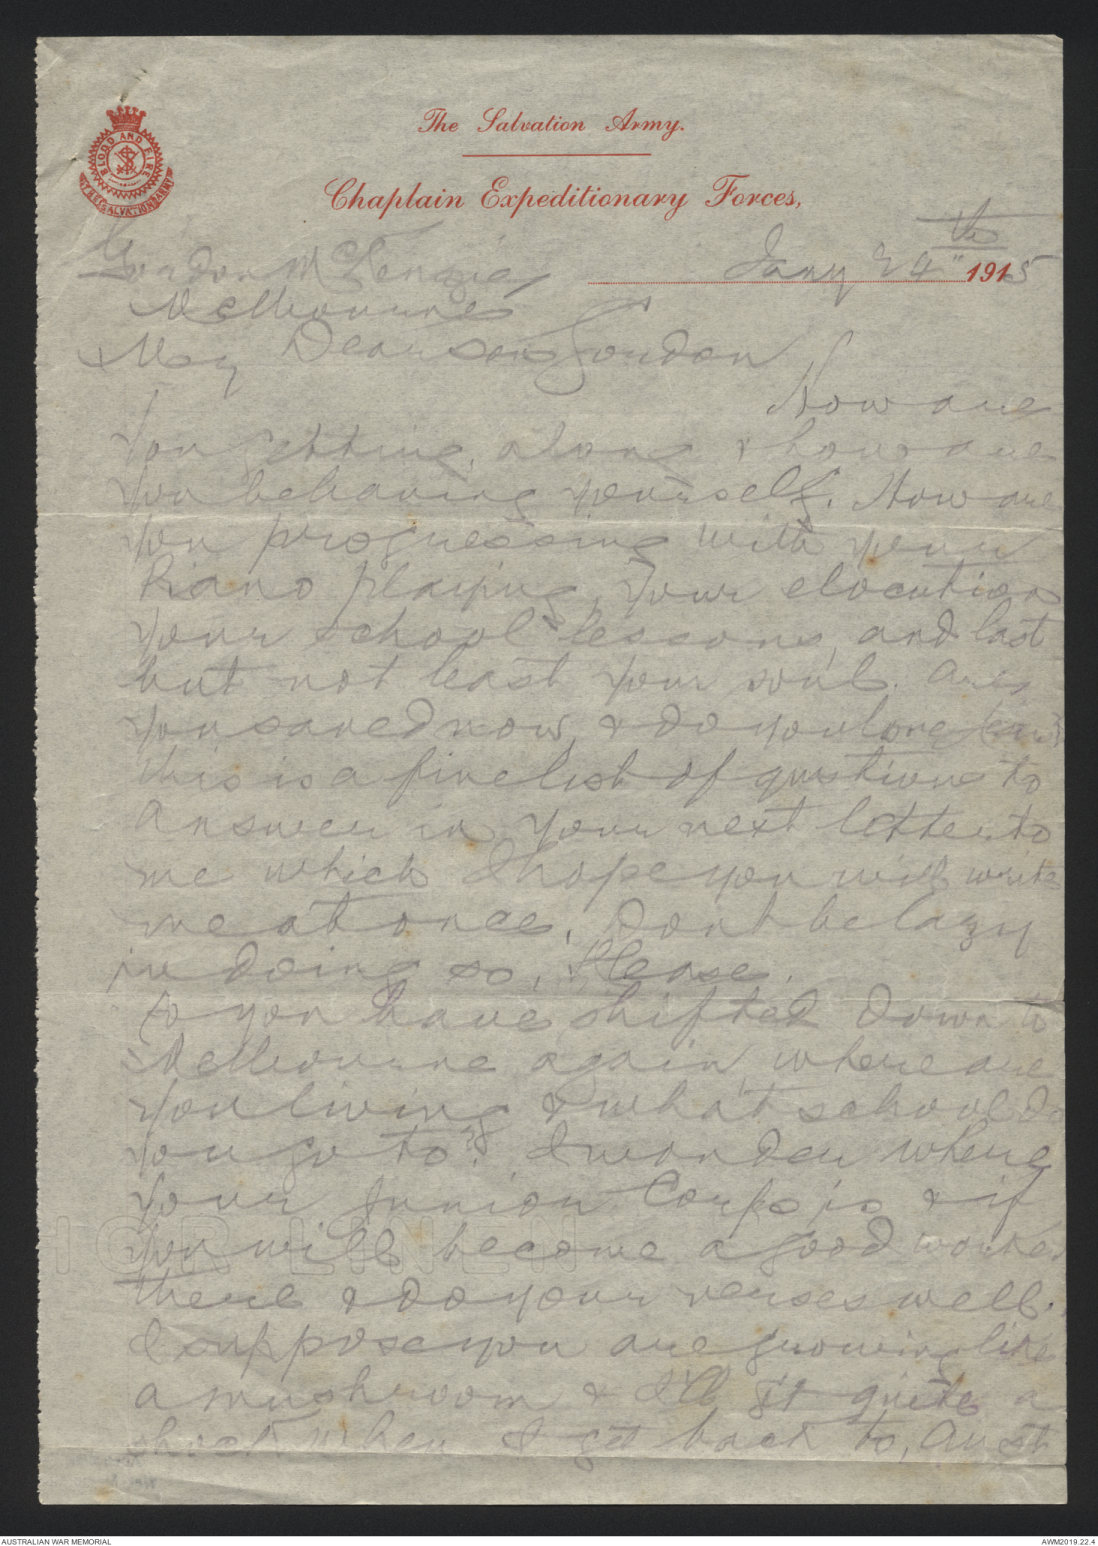 The Salvation Army.
BLOOD AND FIRE
THE SALVATION ARMY
Chaplain Expeditionary Forces,
Gordon McKenzie Jany 24th 1915
Melbourne
My Dear Son Gordon
How are
you getting along & how are
you behaving yourself. How are
you progressing with your
Piano playing, your elocution
your school lessons, and last
but not least your soul. Are
you saved now & do you love
this is a fine list of questions to
answer in your next letter to
me which I hope you will write
me at once. Dont be lazy
in doing so, Please.
So you have shifted down to
Melbourne again where are
you living & what school do
you go to? I wonder where
your Junior Corps is & if
you will become a good worker
there & do your verses well.
I suppose you are growing like
a mushroom & I'll get quite a
shock when I get back to Aust
IOR LINEN
AUSTRALIAN WAR MEMORIAL
AWM2019.22.4